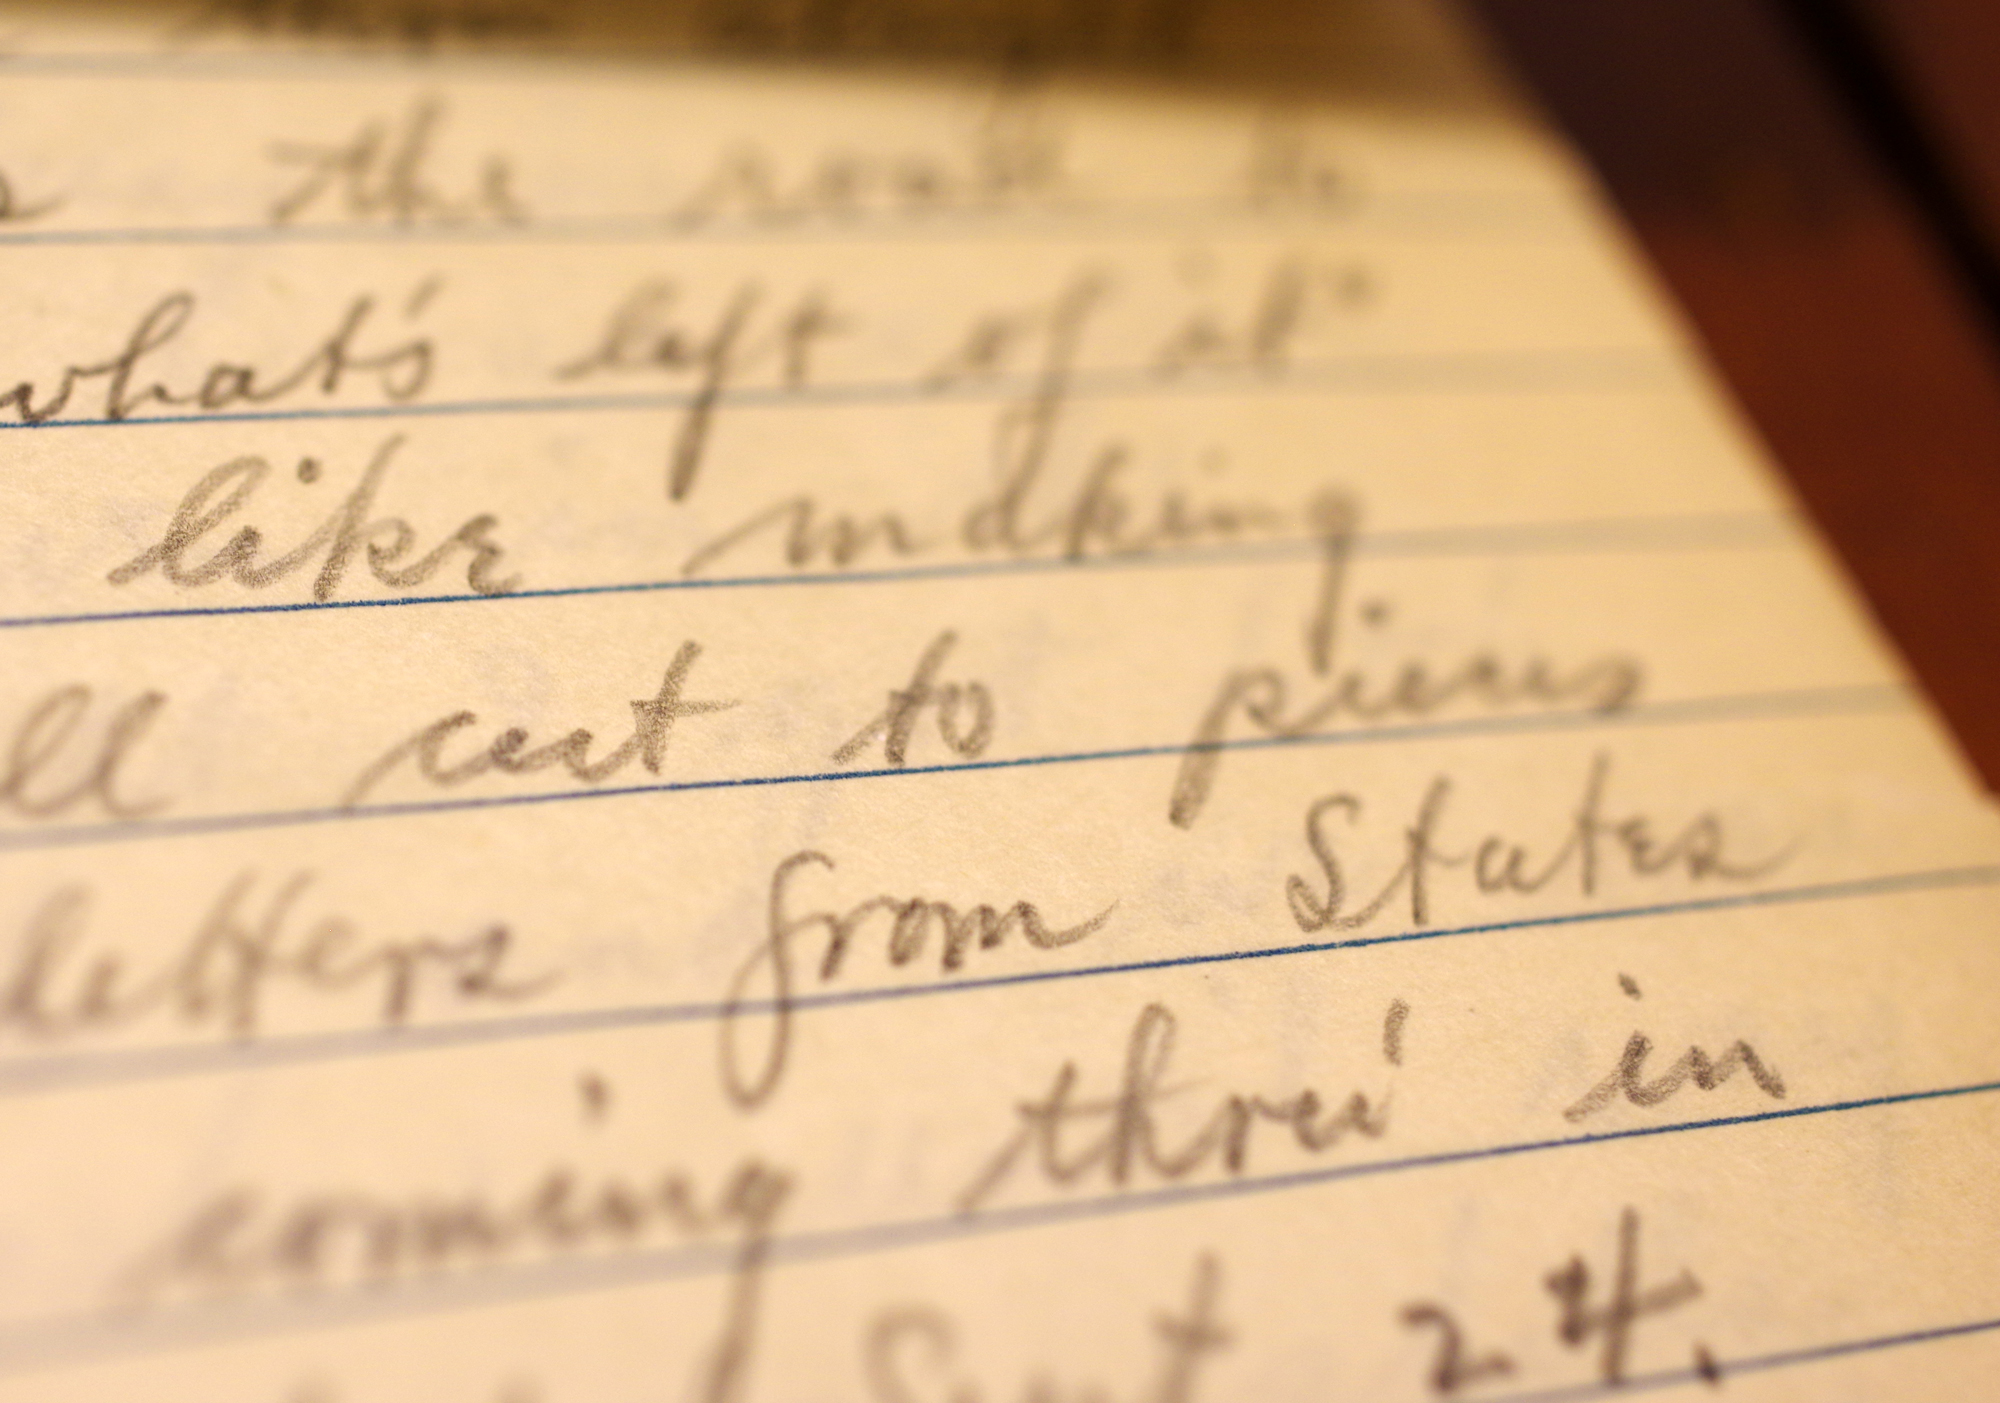 the road to
what's left of it"
like making
ll cut to pieces
letters from States
coming thru' in
Sept 24.